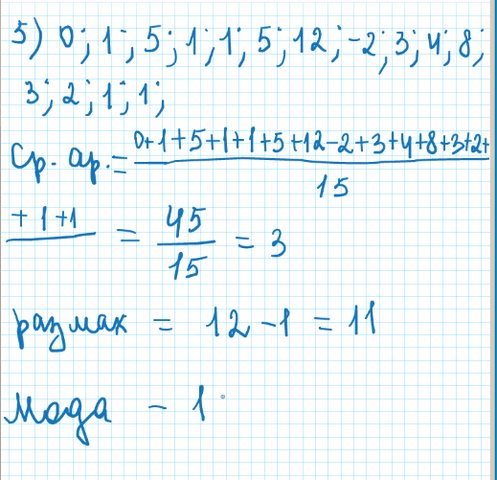 5) 0; 1; 5; 1; 1; 5; 12; -2; 3; 4; 8;
3; 2; 1; 1;
Ср. ар. = 0+1+5+1+1+5+12-2+3+4+8+3+2+
15
+1+1 = 45/15 = 3
размах = 12 - 1 = 11
мода - 1